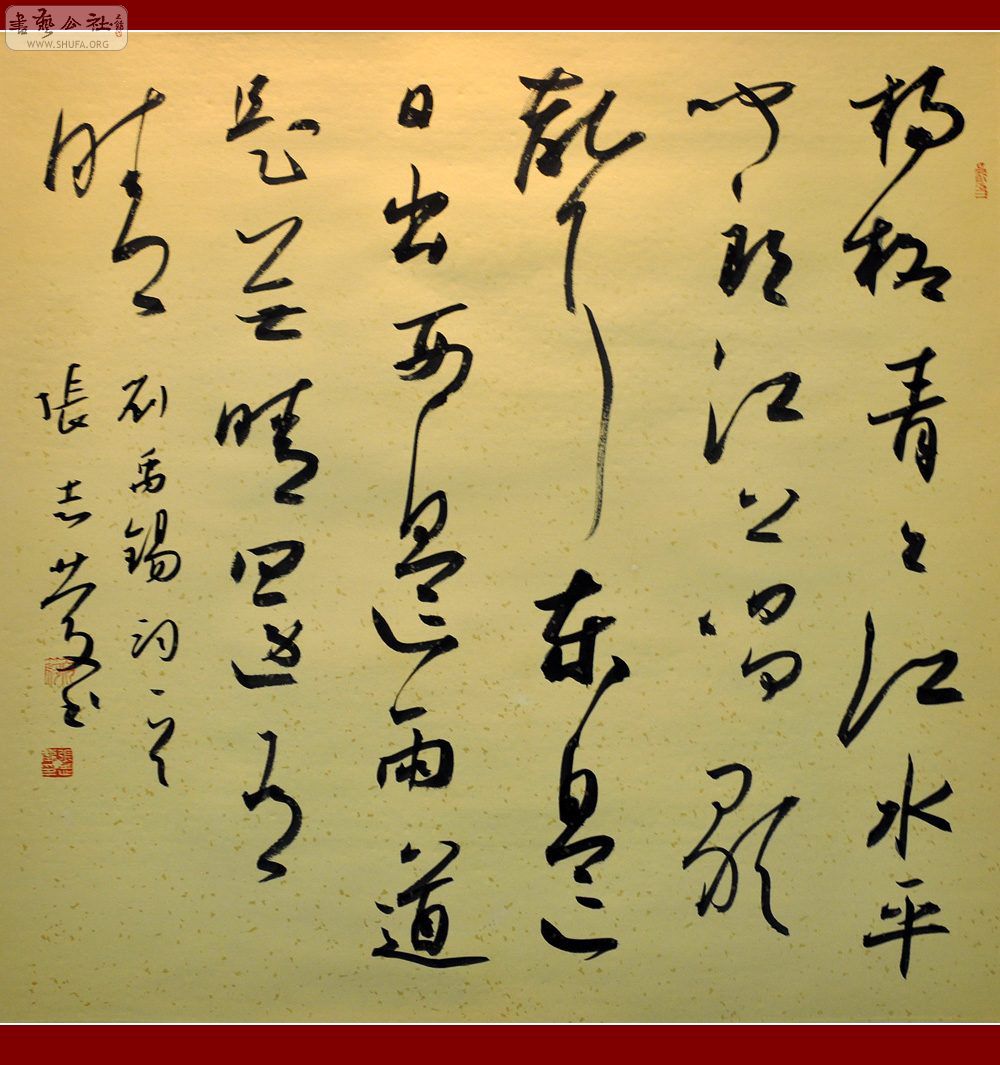 書藝公社
WWW.SHUFA.ORG
楊柳青々江水平
聞郎江上唱歌
聲東邊
日出西邊雨道
是無晴還有
晴
劉禹錫詞一首
張志書